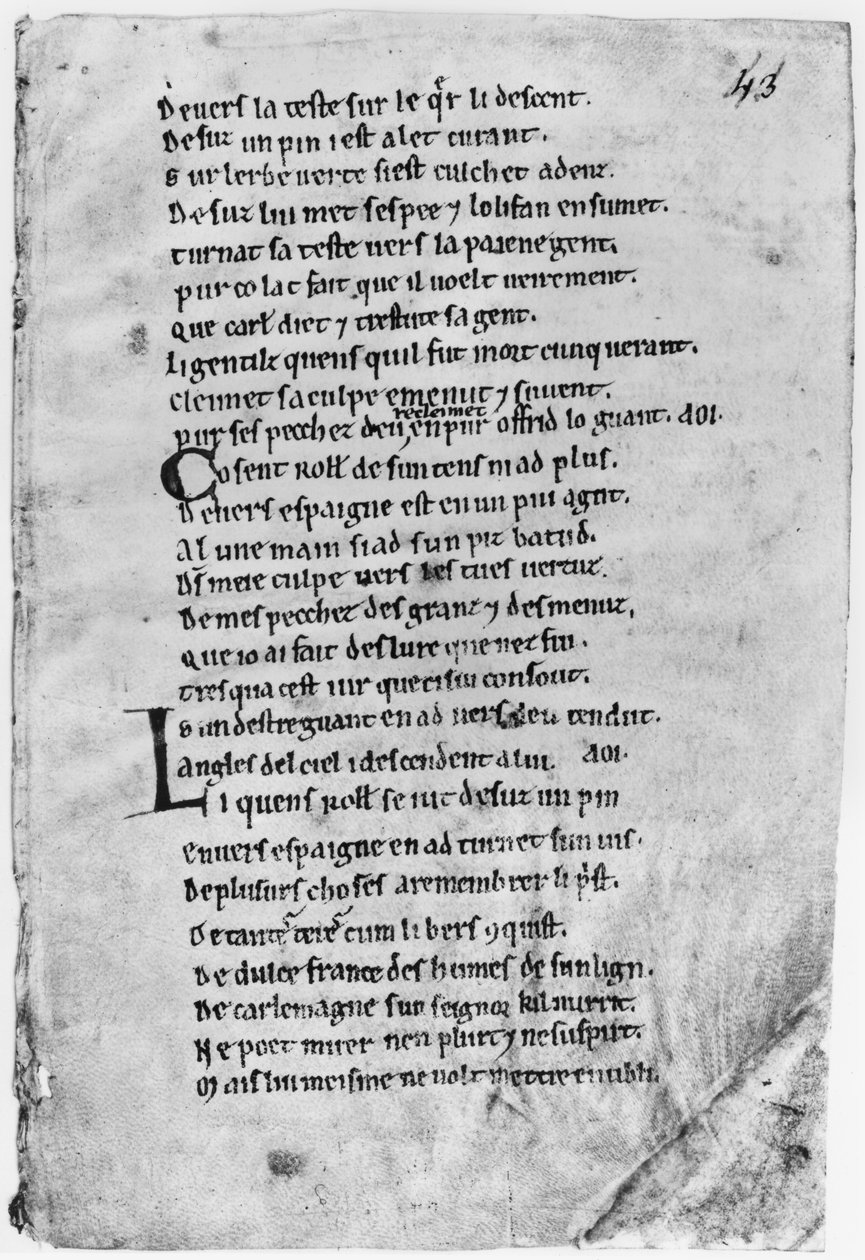 43
Deuers la teste sur le qer li descent.
Desuz un pin i est alet curant.
Sur lerbe uerte siest culchet adenz.
Desuz lui met sespee ⁊ lolifan ensumet.
turnat sa teste uers la paienegent.
pur co lat fait que il uoelt ueirement.
que carł diet ⁊ trestute sa gent.
li gentilz quens quil fut mort cunquerant.
cleimet sa culpe emenut ⁊ suuent.
recleimet
pur ses pecchez deu enpur offrid lo guant. AOI.
Co sent Rołł de suntens niad plus.
Deuers espaigne est en un pui agut.
Al une main siad sun piz batud.
Ds meie culpe uers les tues uertuz.
De mes pecchez des granz ⁊ des menuz.
que io ai fait des lure que nez fui.
tresqua cest iur que ci sui consout.
Sun destre guant en ad uers deu tendut.
Angles del ciel i descendent a lui. AOI.
Li quens Rołł se iut desuz un pin
enuers espaigne en ad turnet sun uis.
De plusurs choses a remembrer li pist.
De tantes teres cum li bers ꝯquist.
De dulce france des humes de sun lign.
De carlemagne sun seignor kil nurrit.
Ne poet muer nen plurt ⁊ ne suspirt.
Mais lui meisme ne uolt mettre en ubli.